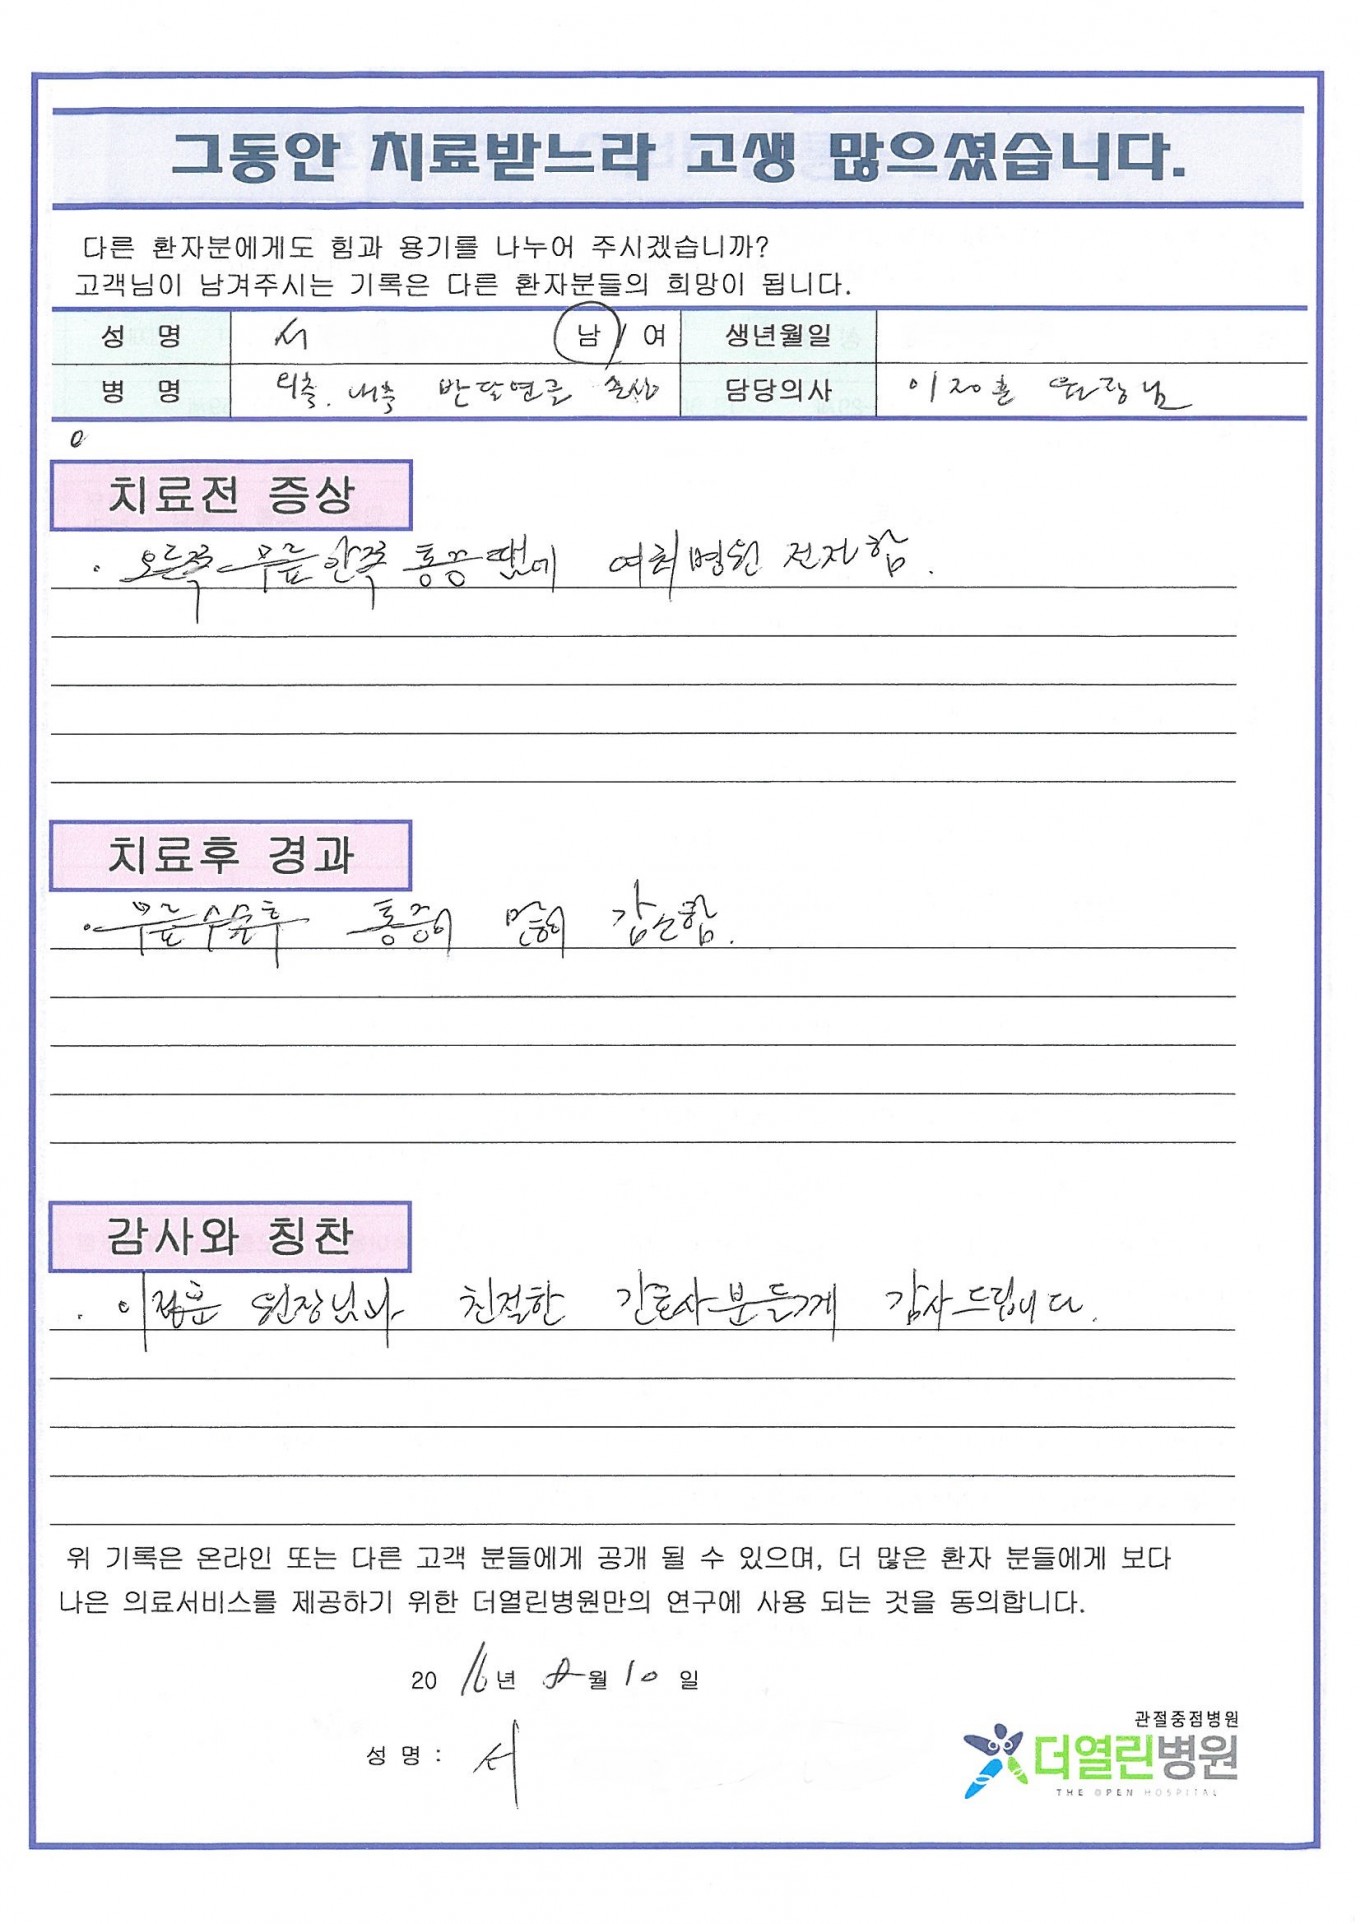 그동안 치료받느라 고생 많으셨습니다.
다른 환자분에게도 힘과 용기를 나누어 주시겠습니까?
고객님이 남겨주시는 기록은 다른 환자분들의 희망이 됩니다.
성 명 서 남 / 여 생년월일
병 명 외측. 내측 반달연골 손상 담당의사 이정훈 원장님
치료전 증상
· 오른쪽 무릎 안쪽 통증땜에 여러병원 전전함.
치료후 경과
· 무릎수술후 통증이 많이 감소함.
감사와 칭찬
· 이정훈 원장님과 친절한 간호사분들게 감사드립니다.
위 기록은 온라인 또는 다른 고객 분들에게 공개 될 수 있으며, 더 많은 환자 분들에게 보다
나은 의료서비스를 제공하기 위한 더열린병원만의 연구에 사용 되는 것을 동의합니다.
20 16 년 8 월 10 일
성 명 : 서
관절중점병원
더열린병원
THE OPEN HOSPITAL